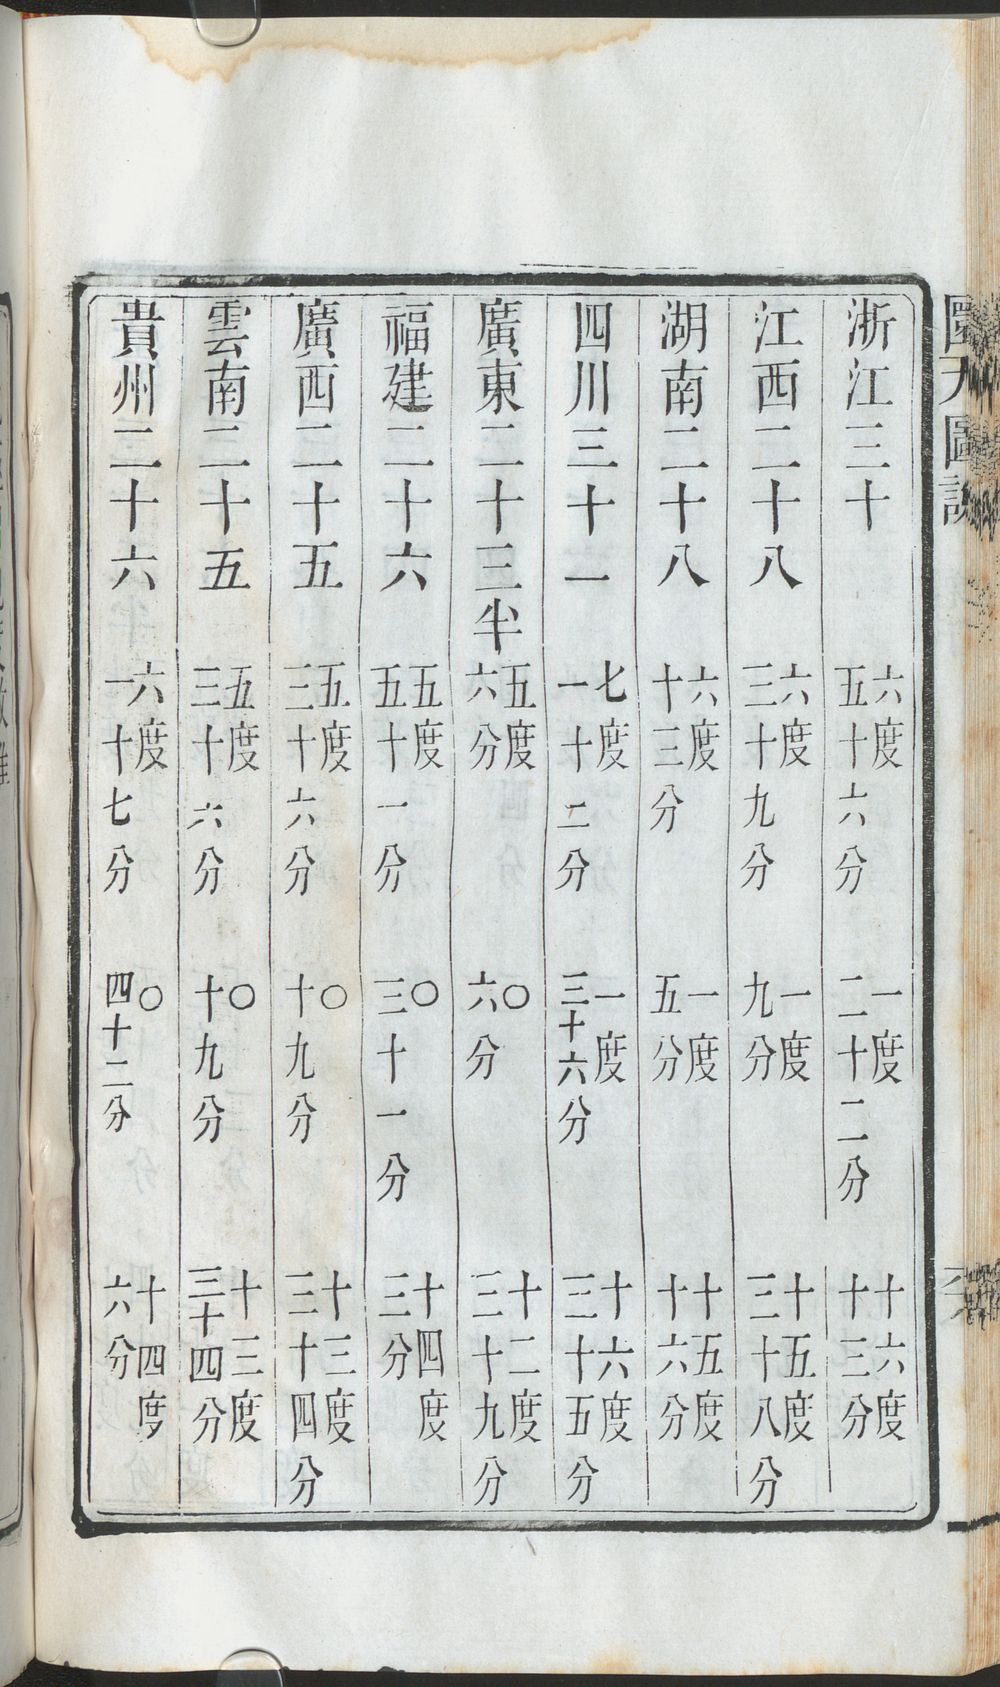 浙江三十 六度五十六分 一度二十二分 十六度十三分
江西二十八 六度三十九分 一度九分 十五度三十八分
湖南二十八 六度十三分 一度五分 十五度十六分
四川三十一 七度一十二分 一度三十六分 十六度三十五分
廣東二十三半 五度六分 〇六分 十二度三十九分
福建二十六 五度五十一分 〇三十一分 十四度三分
廣西二十五 五度三十六分 〇十九分 十三度三十四分
雲南二十五 五度三十六分 〇十九分 十三度三十四分
貴州二十六 六度一十七分 〇四十二分 十四度六分